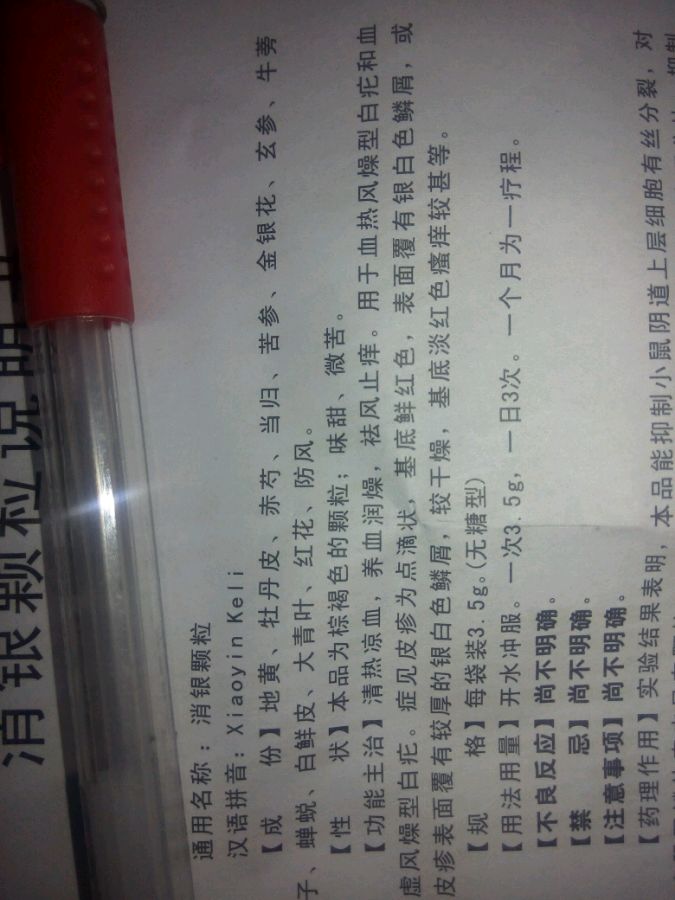 消银颗粒说明
通用名称：消银颗粒
汉语拼音：Xiaoyin Keli
【成　　份】地黄、牡丹皮、赤芍、当归、苦参、金银花、玄参、牛蒡
子、蝉蜕、白鲜皮、大青叶、红花、防风。
【性　　状】本品为棕褐色的颗粒；味甜、微苦。
【功能主治】清热凉血，养血润燥，祛风止痒。用于血热风燥型白疕和血
虚风燥型白疕。症见皮疹为点滴状，基底鲜红色，表面覆有银白色鳞屑，或
皮疹表面覆有较厚的银白色鳞屑，较干燥，基底淡红色瘙痒较甚等。
【规　　格】每袋装3.5g。(无糖型)
【用法用量】开水冲服。一次3.5g，一日3次。一个月为一疗程。
【不良反应】尚不明确。
【禁　　忌】尚不明确。
【注意事项】尚不明确。
【药理作用】实验结果表明，本品能抑制小鼠阴道上层细胞有丝分裂，对